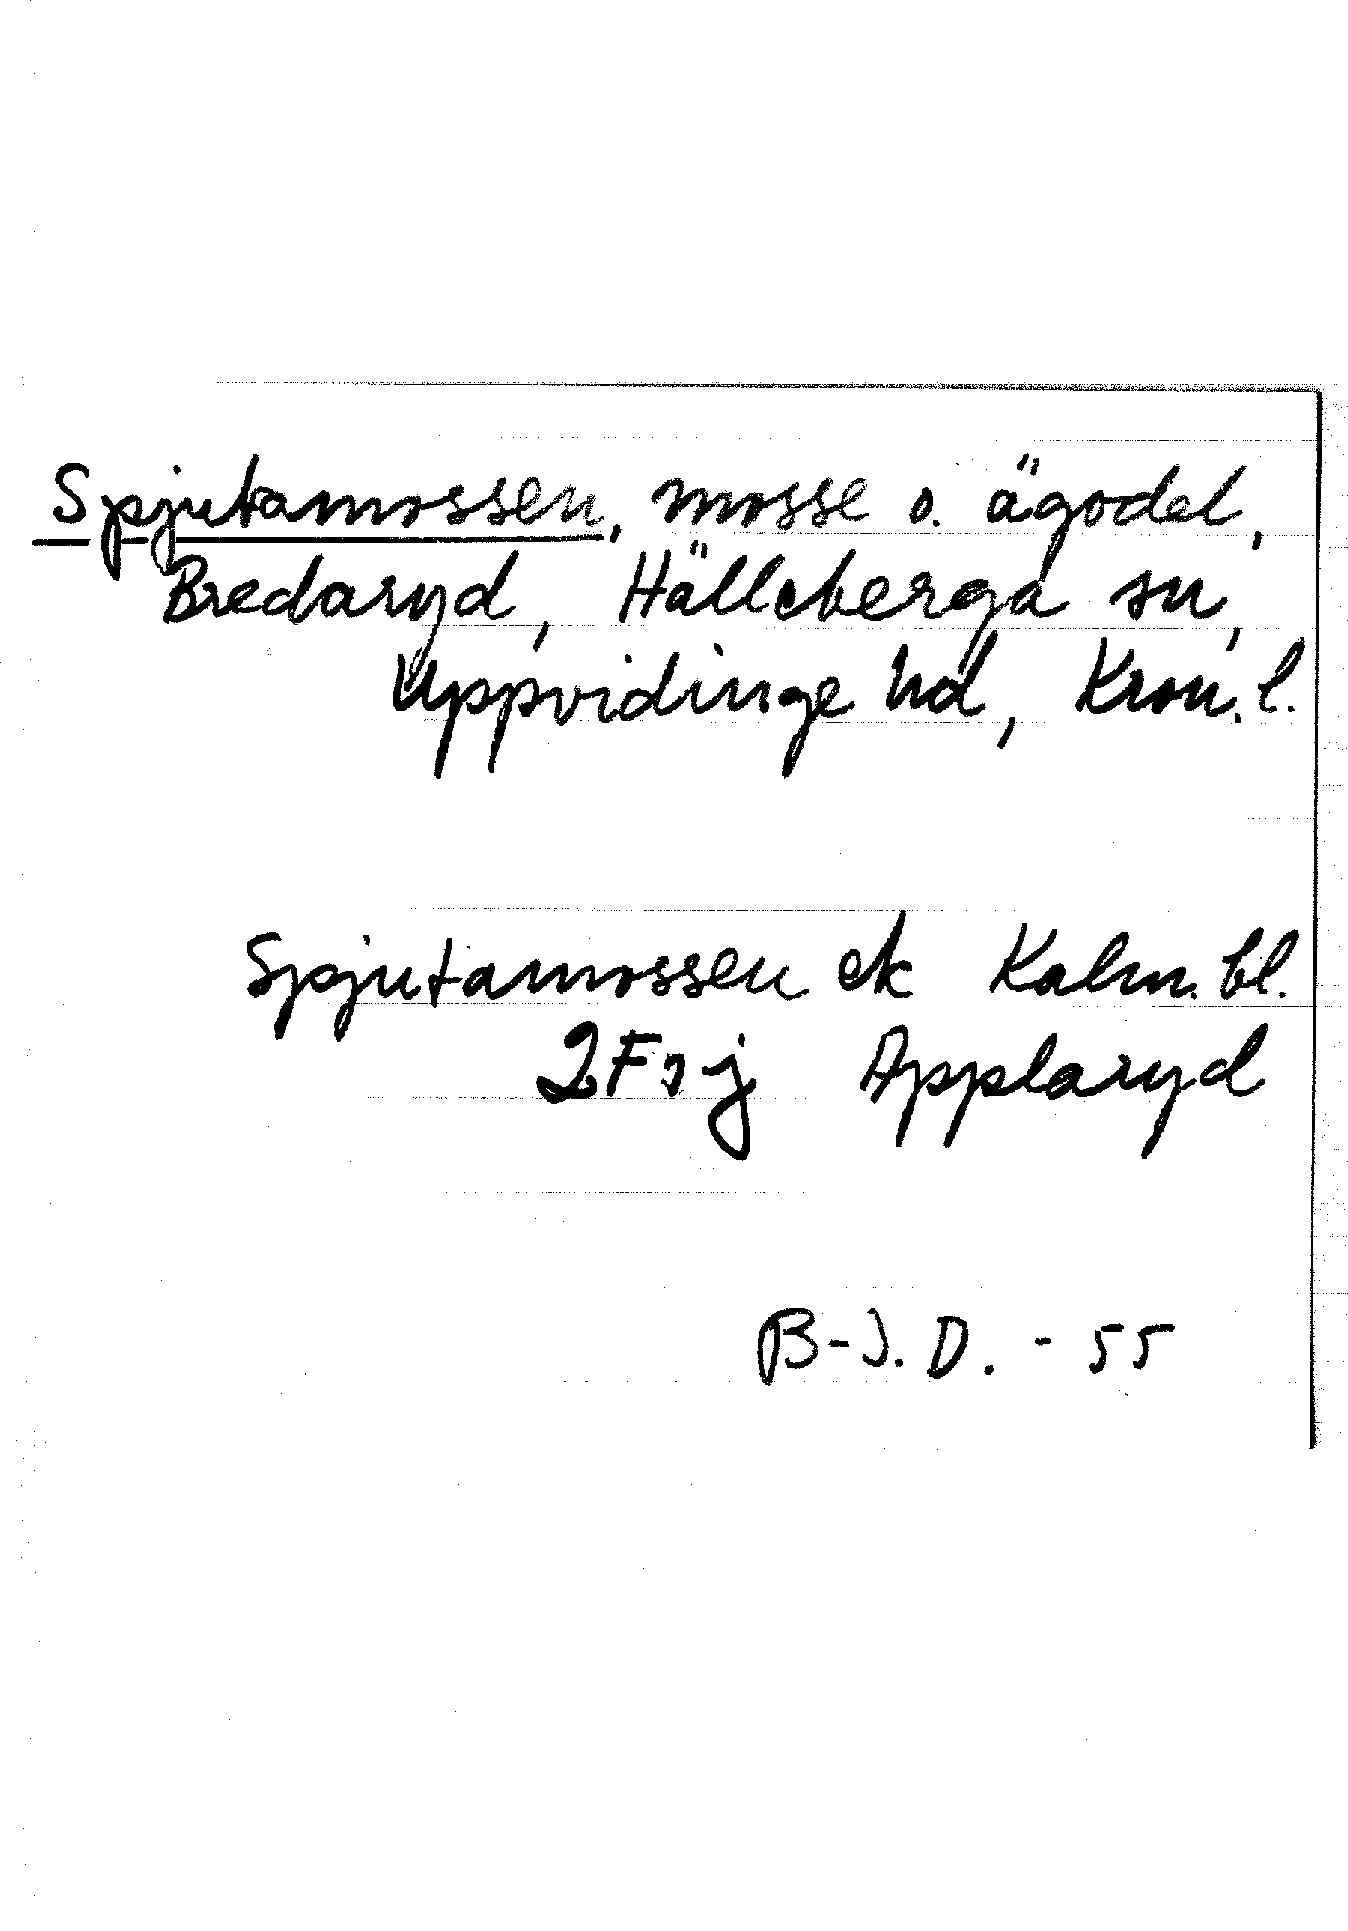 Spjutamossen, mosse o. ägodel,
Bredaryd, Hälleberga sn,
Uppvidinge hd, Kron. l.
Spjutamossen ek Kalm. bl.
Applaryd
B-J. D. - 55